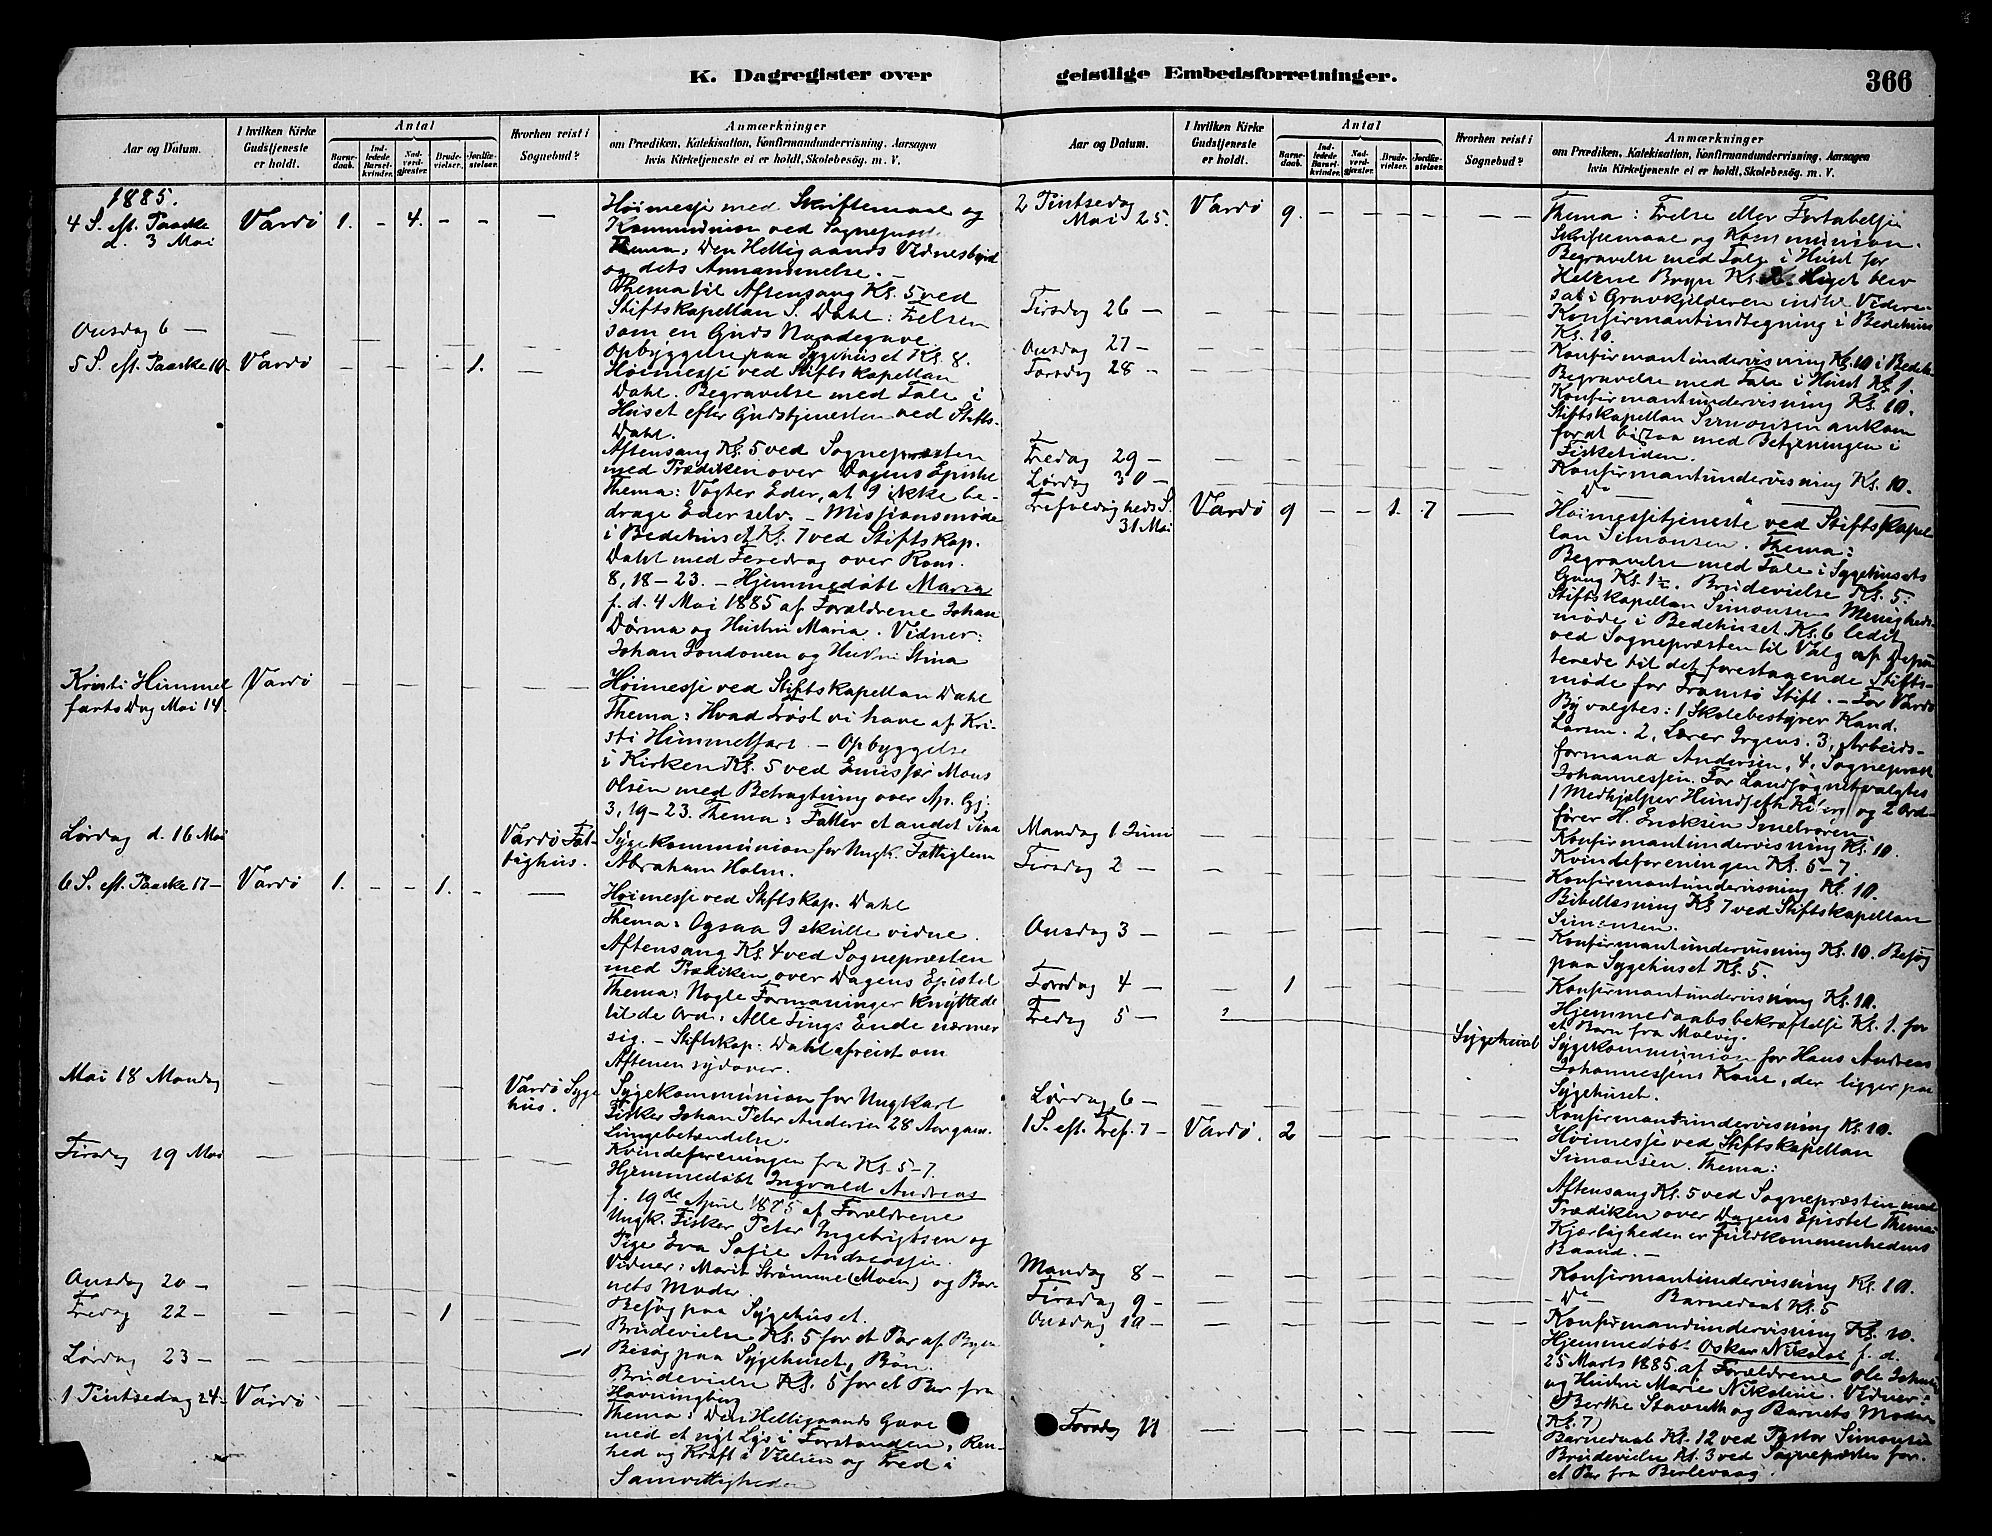 K. Dagregister over geistlige Embedsforretninger.
366
Aar og Datum.
I hvilken Kirke Gudstjeneste er holdt.
Antal
Barnedaab.
Indledede Barselkvinder.
Nadverdgjæster.
Brudevielser.
Jordfæstelser.
Hvorhen reist i Sognebud?
Anmærkninger
om Prædiken, Katekisation, Konfirmandundervisning, Aarsagen
hvis Kirketjeneste ei er holdt, Skolebesøg. m. V.
1885.
4 S. eft. Paaske d. 3 Mai Vardø 1. – 4. – – –
Høimesse med Skriftemaal og
Kommunion ved Sognepræst
Thema: Den Helligaands Vidnesbyrd
og dets Annammelse. –
Thema til Aftensang Kl. 5 ved
Stiftskapellan S. Dahl: Frelsen
som en Guds Naadegave.
Onsdag 6 –
Opbyggelse paa Sygehuset Kl. 8.
5 S. eft. Paaske 10– Vardø – – – – 1. –
Høimesse ved Stiftskapellan
Dahl. Begravelse med Tale i
Huset efter Gudstjenesten ved Stifts-
Dahl.
Aftensang Kl. 5 ved Sognepræsten
med Prædiken over Dagens Epistel
Thema: Vogter Eder, at I ikke be-
drage Eder selv. – Missionsmøde
i Bedehuset Kl. 7 ved Stiftskap.
Dahl med Foredrag over Rom.
8, 18–23. – Hjemmedøbt Maria
f. d. 4 Mai 1885 af Forældrene Johan
Dørma og Hustru Maria. Vidner:
Johan Jondonen og Hustru Stina
Kristi Himmelfarts Dag Mai 14. Vardø
Høimesse ved Stiftskapellan Dahl
Thema: Hvad Trøst vi have af Kri-
sti Himmelfart. – Opbyggelse
i Kirken Kl. 5 ved Emissær Mons
Olsen med Betragtning over Ap. Gj.
3, 19–23. Thema: Fatter et andet Sind
Lørdag d. 16 Mai Vardø Fattighus.
Sygekommunion for Ungk. Fattiglem
Abraham Holm.
6 S. eft. Paaske 17– Vardø 1. – – 1. – –
Høimesse ved Stiftskap. Dahl
Thema: Ogsaa I skulle vidne.
Aftensang Kl. 4 ved Sognepræsten
med Prædiken over Dagens Epistel
Thema: Nogle Formaninger knyttede
til de Ord: Alle Tings Ende nærmer
sig. – Stiftskap. Dahl afreist om
Aftenen sydover.
Mai 18 Mandag Vardø Sygehus.
Sygekommunion for Ungkarl
Fisker Johan Peter Andersen 28 Aar gam.
Lungebetændelse.
Tirsdag 19 Mai
Kvindeforeningen fra Kl. 5–7.
Hjemmedøbt Ingvald Andreas
f. 19de April 1875 af Forældrene
Ungk. Fisker Peter Ingebrigtsen og
Pige Eva Sofie Andreassen.
Vidner: Marit Strømme (Moen) og Bar-
nets Moder.
Onsdag 20 –
Besøg paa Sygehuset.
Fredag 22 – 1
Brudevielse Kl. 5 for et Par af Byen
Lørdag 23 –
Besøg paa Sygehuset, Bøn.
Brudevielse Kl. 5 for et Par fra
Havningberg
1 Pintsedag 24– Vardø
Thema: Den Helligaands Gave
med et nyt Lys i Forstanden, Ren-
hed og Kraft i Villien og Fred i
Samvittigheden
Aar og Datum.
I hvilken Kirke Gudstjeneste er holdt.
Antal
Barnedaab.
Indledede Barselkvinder.
Nadverdgjæster.
Brudevielser.
Jordfæstelser.
Hvorhen reist i Sognebud?
Anmærkninger
om Prædiken, Katekisation, Konfirmandundervisning, Aarsagen
hvis Kirketjeneste ei er holdt, Skolebesøg. m. V.
2 Pintsedag Mai 25. Vardø 9. – – – – – –
Thema: Frelse eller Fortabelse
Skriftemaal og Kommunion.
Begravelse med Tale i Huset for
Helene Kl. Liget blev
sat i Gravkjelderen indtil Videre
Tirsdag 26 –
Konfirmantindtegning i Bedehuset
Kl. 10.
Onsdag 27 –
Konfirmantundervisning Kl. 10 i Bedeh.
Torsdag 28 –
Begravelse med Tale i Huset Kl. 1.
Konfirmantundervisning Kl. 10.
Stiftskapellan Simonsen ankom
for at bistaa med Betjeningen i
Fisketiden.
Fredag 29 –
Konfirmantundervisning Kl. 10.
Lørdag 30 –
Do "
Trefoldigheds S. 31 Mai Vardø 9 – – 1. 7 –
Høimessetjeneste ved Stiftskapel-
lan Simonsen. Thema:
Begravelse med Tale i Sygehusets
Gang Kl. 1½. Brudevielse Kl. 5.
Stiftskapellan Simonsen Menigheds-
møde i Bedehuset Kl. 6 ledet
ved Sognepræsten til Valg af Depu-
terede til det forestaaende Stifts-
møde for Tromsø Stift. – For Vardø
By valgtes: 1 Skolebestyrer Kand.
Larsen. 2, Lærer Irgens. 3, Arbeids-
formand Andersen, 4, Sognepræst
Johannessen. For Landsognet valgtes
1 Medhjælper og 2 Ord-
fører H. Enoksen Smelroren.
Mandag 1 Juni
Konfirmantundervisning Kl. 10.
Kvindeforeningen Kl. 5–7.
Tirsdag 2 –
Konfirmantundervisning Kl. 10.
Bibellæsning Kl. 7 ved Stiftskapellan
Simonsen.
Onsdag 3 –
Konfirmantundervisning Kl. 10. Besøg
paa Sygehuset Kl. 5.
Torsdag 4 – 1
Konfirmantundervisning Kl. 10.
Hjemmedaabsbekræftelse Kl. 1. for
et Barn fra Molvig.
Fredag 5 – Sygehuset
Sygekommunion for Hans Andreas
Johannessens Kone, der ligger paa
Sygehuset.
Lørdag 6 –
Konfirmantundervisning Kl. 10.
1 S. eft. Tref. 7 – Vardø. 2
Høimesse ved Stiftskapellan
Simonsen. Thema:
Aftensang Kl. 5 ved Sognepræsten med
Prædiken over Dagens Epistel Thema:
Kjærligheden er Fuldkommenhedens
Baand. –
Mandag 8 –
Konfirmantundervisning Kl. 10.
Tirsdag 9 –
– Do Barnedaab Kl. 5
Onsdag 10 –
Konfirmandundervisning Kl. 10.
Hjemmedøbt Oskar Nikolai f. d.
25 Marts 1885 af Forældrene Ole
og Hustru Marie Nikoline. Vidner:
Berthe og Barnets Moder
(Kl. 7)
Torsdag 11
Barnedaab Kl. 12 ved Pastor Simonsen
Brudevielse Kl. 3 ved Sognepræsten for
et Par fra Berlevaag.